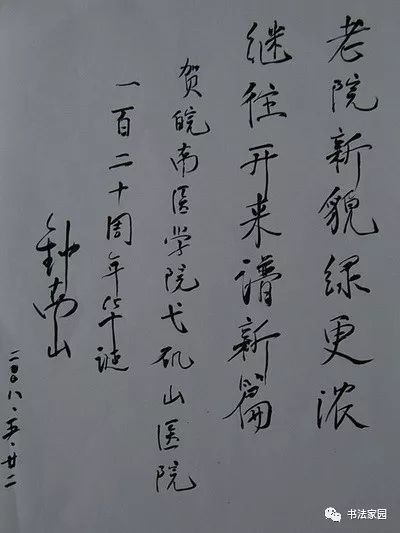 老院新貌绿更浓
继往开来谱新篇
贺皖南医学院弋矶山医院
一百二十周年华诞
钟南山
二〇〇八.五.廿二
书法家园